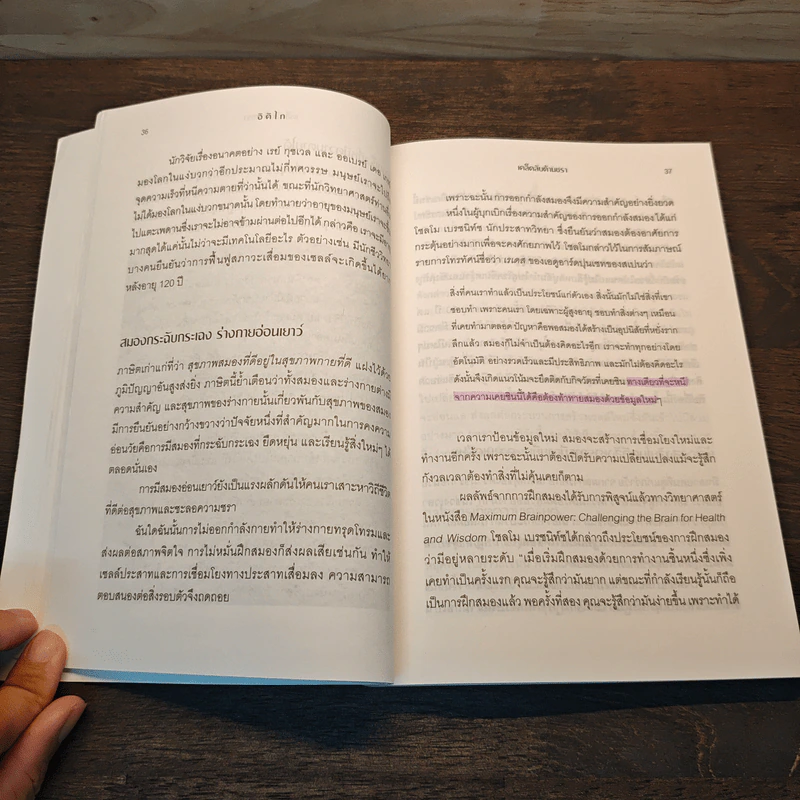 36
อิคิไก
นักวิจัยเรื่องอนาคตอย่าง เรย์ กูซเวล และ ออเบรย์ เดอ เกรย์
มองโลกในแง่บวกว่าอีกประมาณไม่กี่ทศวรรษ มนุษย์เราจะไป
จุดความเร็วที่หนีความตายที่ว่านั้นได้ ขณะที่นักวิทยาศาสตร์ท่าน
ไม่ได้มองโลกในแง่บวกขนาดนั้น โดยทำนายว่าอายุของมนุษย์เราจะ
ไปแตะเพดานซึ่งเราจะไม่อาจข้ามผ่านต่อไปอีกได้ กล่าวคือ เราจะมี
มากสุดได้แค่นั้นไม่ว่าจะมีเทคโนโลยีอะไร ตัวอย่างเช่น มีนักชีววิทยา
บางคนยืนยันว่าการฟื้นฟูสภาวะเสื่อมของเซลล์จะเกิดขึ้นได้ยาก
หลังอายุ 120 ปี
สมองกระฉับกระเฉง ร่างกายอ่อนเยาว์
ภาษิตเก่าแก่ที่ว่า สุขภาพสมองที่ดีอยู่ในสุขภาพกายที่ดี แฝงไว้ด้วย
ภูมิปัญญาอันสูงส่งยิ่ง ภาษิตนี้ย้ำเตือนว่าทั้งสมองและร่างกายต่างมี
ความสำคัญ และสุขภาพของร่างกายนั้นเกี่ยวพันกับสุขภาพของสมอง
มีการยืนยันอย่างกว้างขวางว่าปัจจัยหนึ่งที่สำคัญมากในการคงความ
อ่อนวัยคือการมีสมองที่กระฉับกระเฉง ยืดหยุ่น และเรียนรู้สิ่งใหม่ๆ ได้
ตลอดนั่นเอง
การมีสมองอ่อนเยาว์ยังเป็นแรงผลักดันให้คนเราเสาะหาวิถีชีวิต
ที่ดีต่อสุขภาพและชะลอความชรา
ฉันใดฉันนั้นการไม่ออกกำลังกายทำให้ร่างกายทรุดโทรมและ
ส่งผลต่อสภาพจิตใจ การไม่หมั่นฝึกสมองก็ส่งผลเสียเช่นกัน ทำให้
เซลล์ประสาทและการเชื่อมโยงทางประสาทเสื่อมลง ความสามารถ
ตอบสนองต่อสิ่งรอบตัวจึงถดถอย
เคล็ดลับต้านชรา
37
เพราะฉะนั้น การออกกำลังสมองจึงมีความสำคัญอย่างยิ่งยวด
หนึ่งในผู้บุกเบิกเรื่องความสำคัญของการออกกำลังสมองได้แก่
โชลโม เบรซนิทซ์ นักประสาทวิทยา ซึ่งยืนยันว่าสมองต้องอาศัยการ
กระตุ้นอย่างมากเพื่อจะคงศักยภาพไว้ โชลโมกล่าวไว้ในการสัมภาษณ์
รายการโทรทัศน์ชื่อว่า เรเดส ของเอดูอาร์ดปุนเซทของสเปนว่า
สิ่งที่คนเราทำแล้วเป็นประโยชน์แก่ตัวเอง สิ่งนั้นมักไม่ใช่สิ่งที่เขา
ชอบทำ เพราะคนเรา โดยเฉพาะผู้สูงอายุ ชอบทำสิ่งต่างๆ เหมือน
ที่เคยทำมาตลอด ปัญหาคือพอสมองได้สร้างเป็นอุปนิสัยที่หยั่งราก
ลึกแล้ว สมองก็ไม่จำเป็นต้องคิดอะไรอีก เราจะทำทุกอย่างโดย
อัตโนมัติ อย่างรวดเร็วและมีประสิทธิภาพ และมักไม่ต้องคิดอะไร
ดังนั้นจึงเกิดแนวโน้มจะยึดติดกับกิจวัตรที่เคยชิน ทางเดียวที่จะหนี
จากความเคยชินนี้ได้คือต้องท้าทายสมองด้วยข้อมูลใหม่ๆ
เวลาเราป้อนข้อมูลใหม่ สมองจะสร้างการเชื่อมโยงใหม่และ
ทำงานอีกครั้ง เพราะฉะนั้นเราต้องเปิดรับความเปลี่ยนแปลงแม้จะรู้สึก
กังวลเวลาต้องทำสิ่งที่ไม่คุ้นเคยก็ตาม
ผลลัพธ์จากการฝึกสมองได้รับการพิสูจน์แล้วทางวิทยาศาสตร์
ในหนังสือ Maximum Brainpower: Challenging the Brain for Health
and Wisdom โชลโม เบรซนิทซ์ได้กล่าวถึงประโยชน์ของการฝึกสมอง
ว่ามีอยู่หลายระดับ “เมื่อเริ่มฝึกสมองด้วยการทำงานชิ้นหนึ่งซึ่งเพิ่ง
เคยทำเป็นครั้งแรก คุณจะรู้สึกว่ามันยาก แต่ขณะที่กำลังเรียนรู้นั้นก็ถือ
เป็นการฝึกสมองแล้ว พอครั้งที่สอง คุณจะรู้สึกว่ามันง่ายขึ้น เพราะทำได้